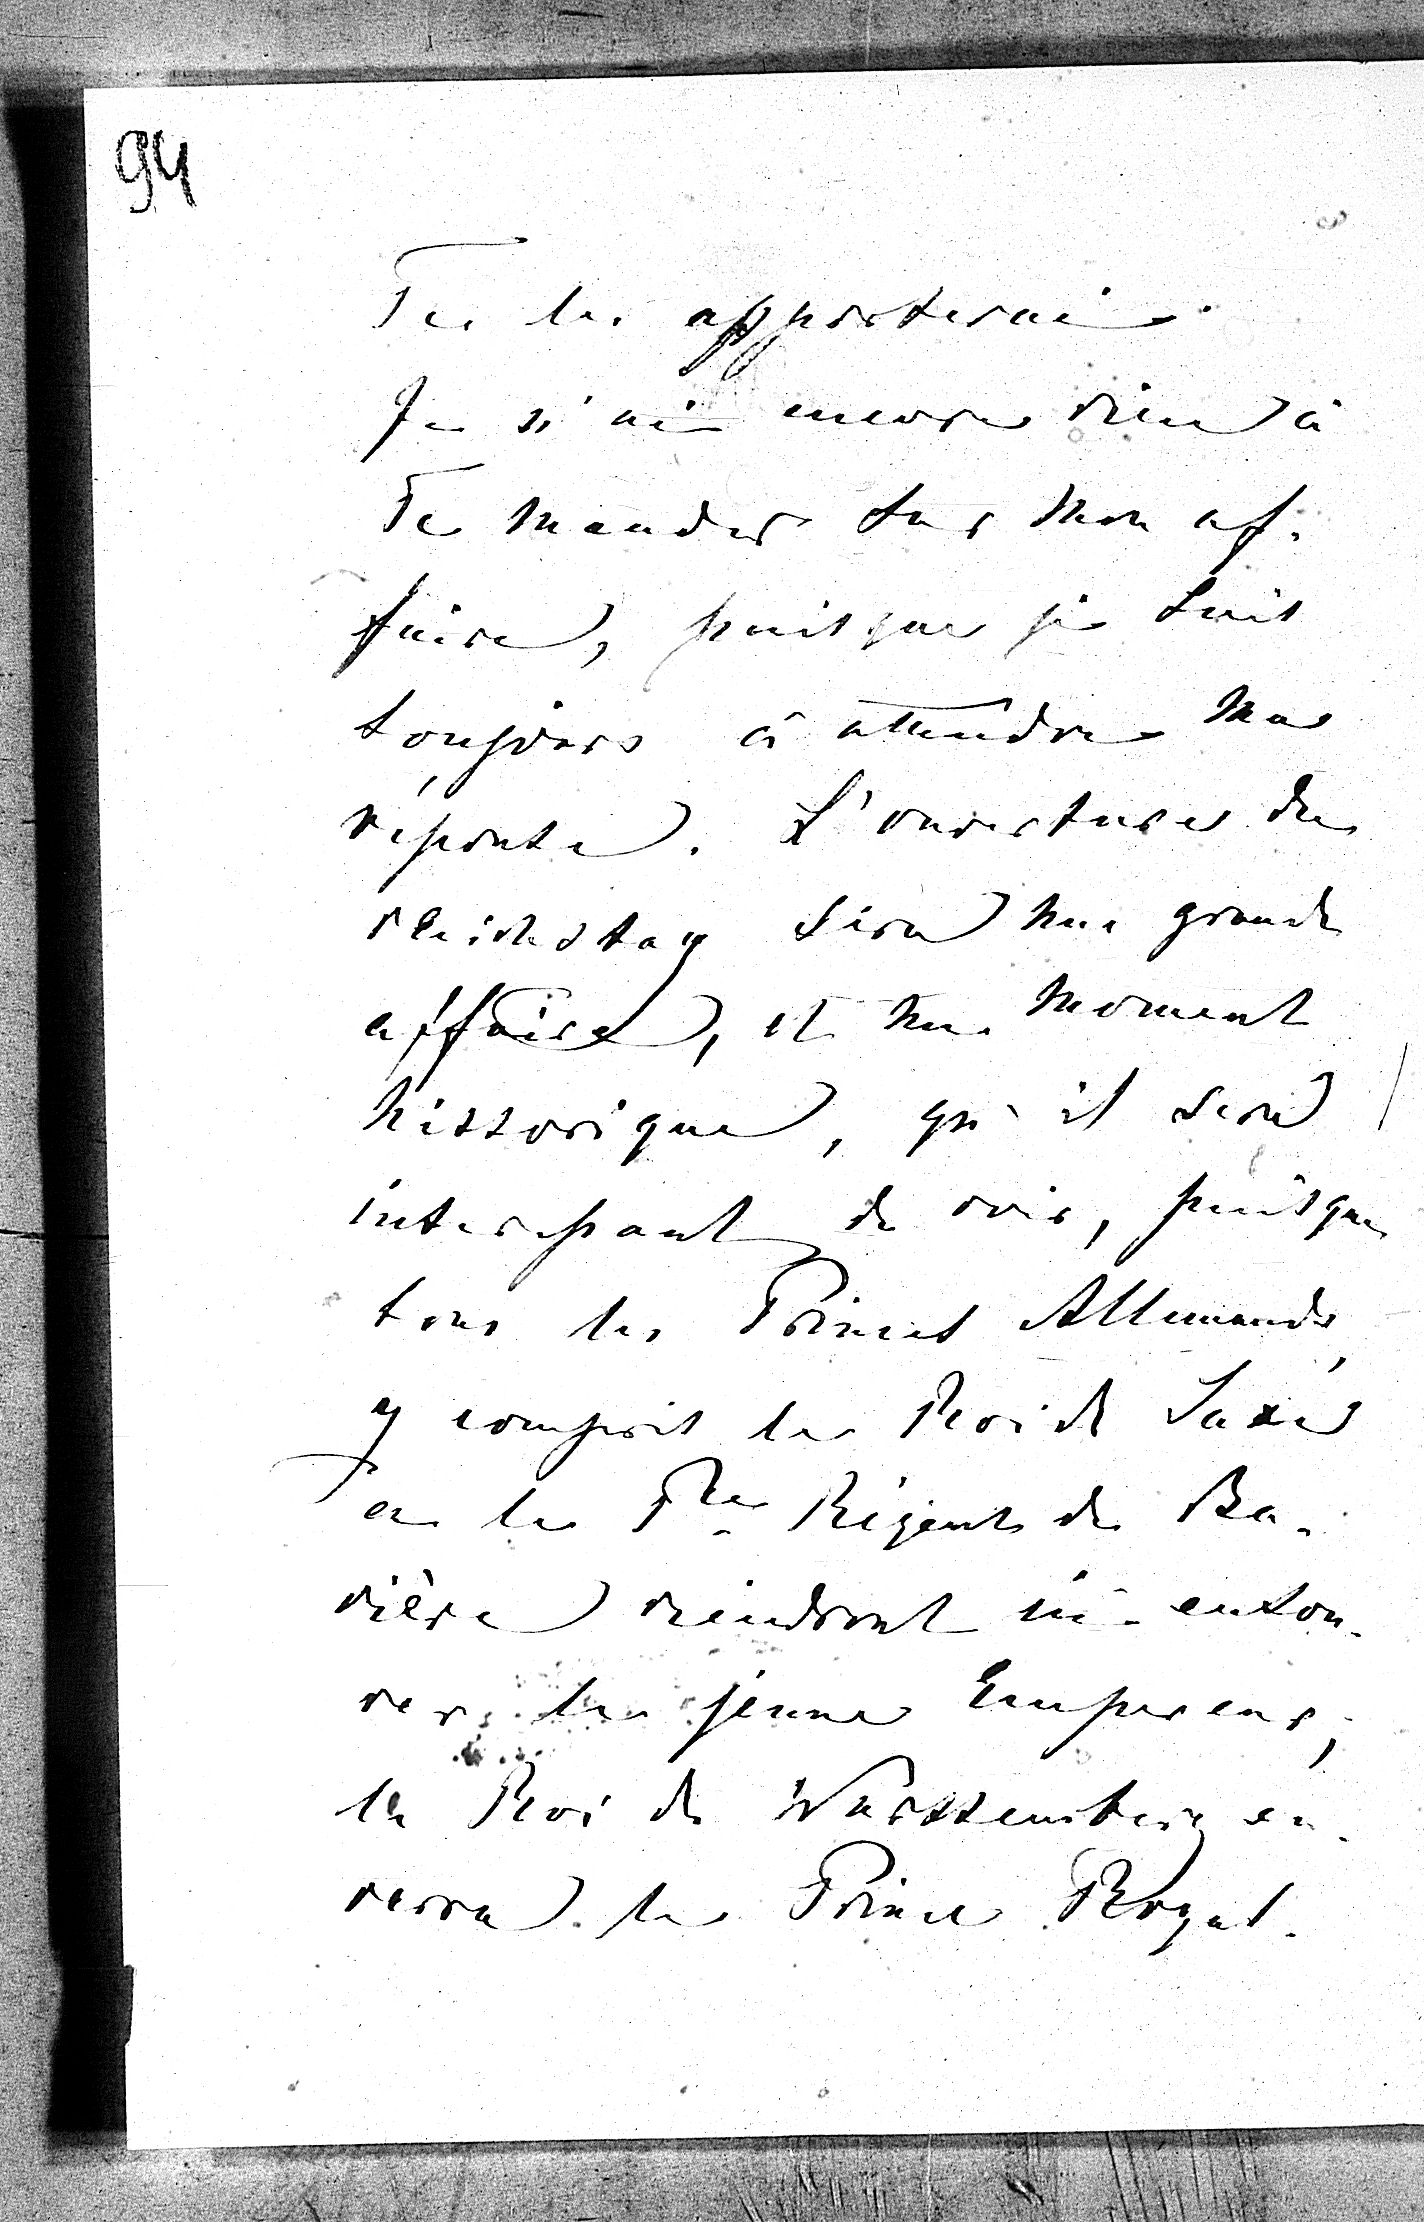 94
Te les apporterai.
Je n'ai encore rien à
Te mander sur mon af-
faire, puisque je suis
toujours à attendre ma
réponse. L'ouverture du
reichstag sera une grande
affaire, et un moment
historique, qu'il sera
interessant de voir, puisque
tous les Princes Allemands,
y compris le Roi de Saxe
et le Pce Régent de Ba-
vière viendront ici entou-
rer le jeune Empereur,
le Roi de Württemberg en-
verra le Prince Royal.